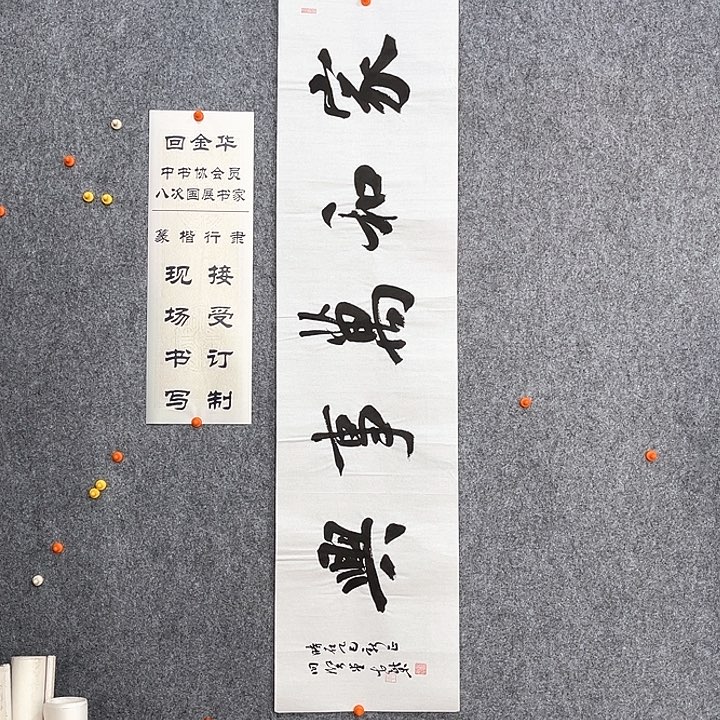 回金华
中书协会员
八次国展书家
篆楷行隶
现场书写
接受订制
家和萬事興
時在乙巳新正